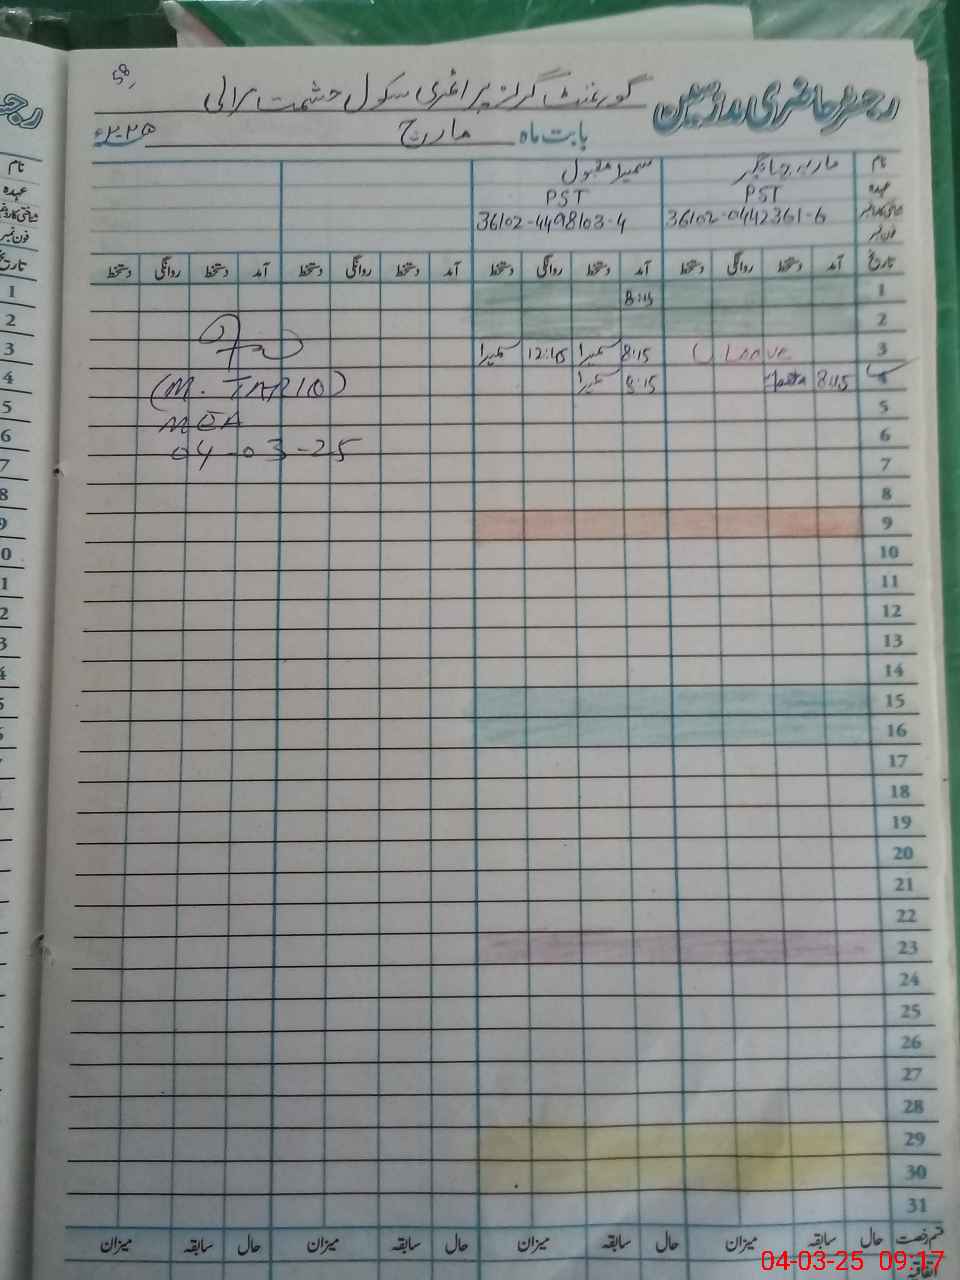 58
رجسٹر حاضری ملازمین گورنمنٹ گرلز پرائمری سکول حشمت مرالی
بابت ماہ مارچ ۲۰۲۵ء
نام ماریہ جہانگیر سمیرا مقبول
عہدہ PST PST
شناختی کارڈ نمبر 36102-0442361-6 36102-4498103-4
فون نمبر
تاریخ آمد دستخط روانگی دستخط آمد دستخط روانگی دستخط آمد دستخط روانگی دستخط آمد دستخط روانگی دستخط
1 8:15
2
3 Leave 8:15 سمیرا 12:15 سمیرا
4 8:15 8:15 سمیرا
(M. TARIQ)
5
MEA
6
04-03-25
7
8
9
10
11
12
13
14
15
16
17
18
19
20
21
22
23
24
25
26
27
28
29
30
31
قسم رخصت حال سابقہ میزان حال سابقہ میزان حال سابقہ میزان حال سابقہ میزان
اتفاقیہ
04-03-25 09:17